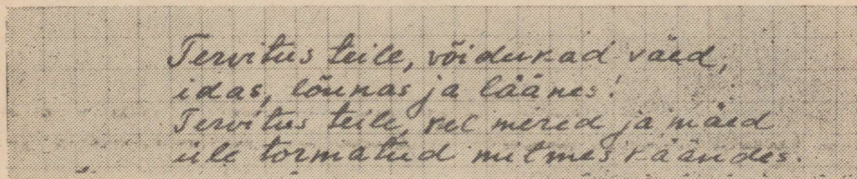 Tervitus teile, võidukad väed,
idas, lõunas ja läänes!
Tervitus teile, kel mered ja mäed
üle tormatud mitmes käändes.